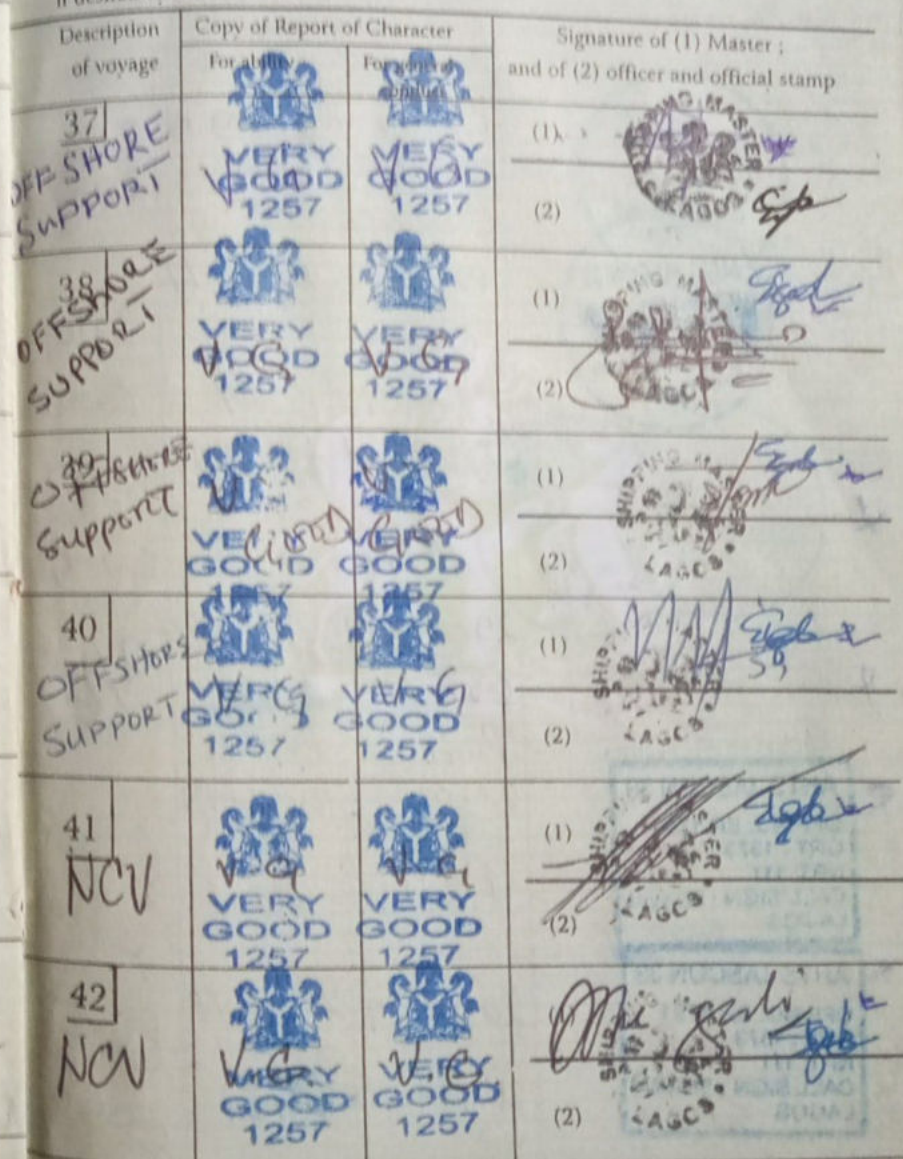 Description of voyage
Copy of Report of Character
For ability
For general conduct
Signature of (1) Master ;
and of (2) officer and official stamp
37
OFFSHORE
SUPPORT
V G
VERY
GOOD
1257
V G
VERY
GOOD
1257
(1)
(2)
SHIPPING MASTER
LAGOS
38
OFFSHORE
SUPPORT
V G
VERY
GOOD
1257
V G
VERY
GOOD
1257
(1)
(2)
SHIPPING MA
LAGOS
39
OFFSHORE
SUPPORT
V
GOOD
VERY
GOOD
1257
V
GOOD
VERY
GOOD
1257
(1)
(2)
SHIPPING MASTER
LAGOS
40
OFFSHORE
SUPPORT
V G
VERY
GOOD
1257
V G
VERY
GOOD
1257
(1)
(2)
SHIPPING
LAGOS
41
NCV
V G
VERY
GOOD
1257
V G
VERY
GOOD
1257
(1)
(2)
SHIPPING MASTER
LAGOS
42
NCV
V.G
VERY
GOOD
1257
V.G
VERY
GOOD
1257
(2)
LAGOS